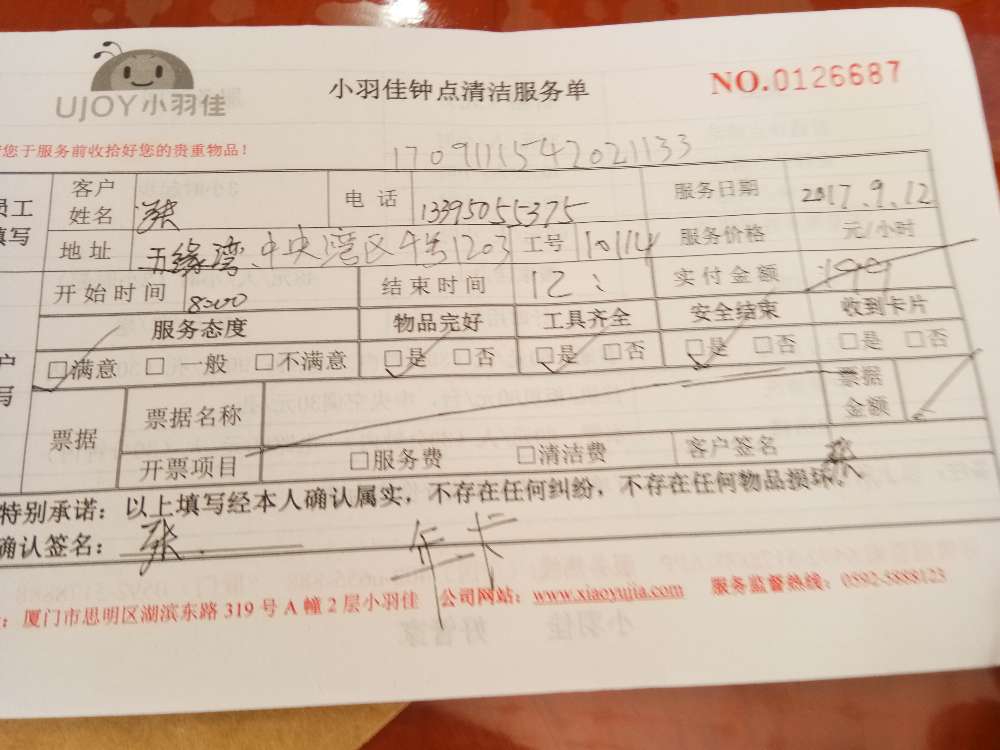 UJOY小羽佳
小羽佳钟点清洁服务单
NO.0126687
您于服务前收拾好您的贵重物品！
17091115472021133
员工填写 客户姓名 张 电话 13395055375 服务日期 2017.9.12
地址 五缘湾中央湾区4号1203 工号 10114 服务价格 元/小时
开始时间 8:00 结束时间 12: 实付金额 199
服务态度 物品完好 工具齐全 安全结束 收到卡片
□满意 □一般 □不满意 □是 □否 □是 □否 □是 □否 □是 □否
票据 票据名称 票据金额
开票项目 □服务费 □清洁费 客户签名 张
特别承诺：以上填写经本人确认属实，不存在任何纠纷，不存在任何物品损坏。
确认签名：张 年卡
：厦门市思明区湖滨东路 319 号 A 幢 2 层小羽佳 公司网站：www.xiaoyujia.com 服务监督热线：0592-5888123